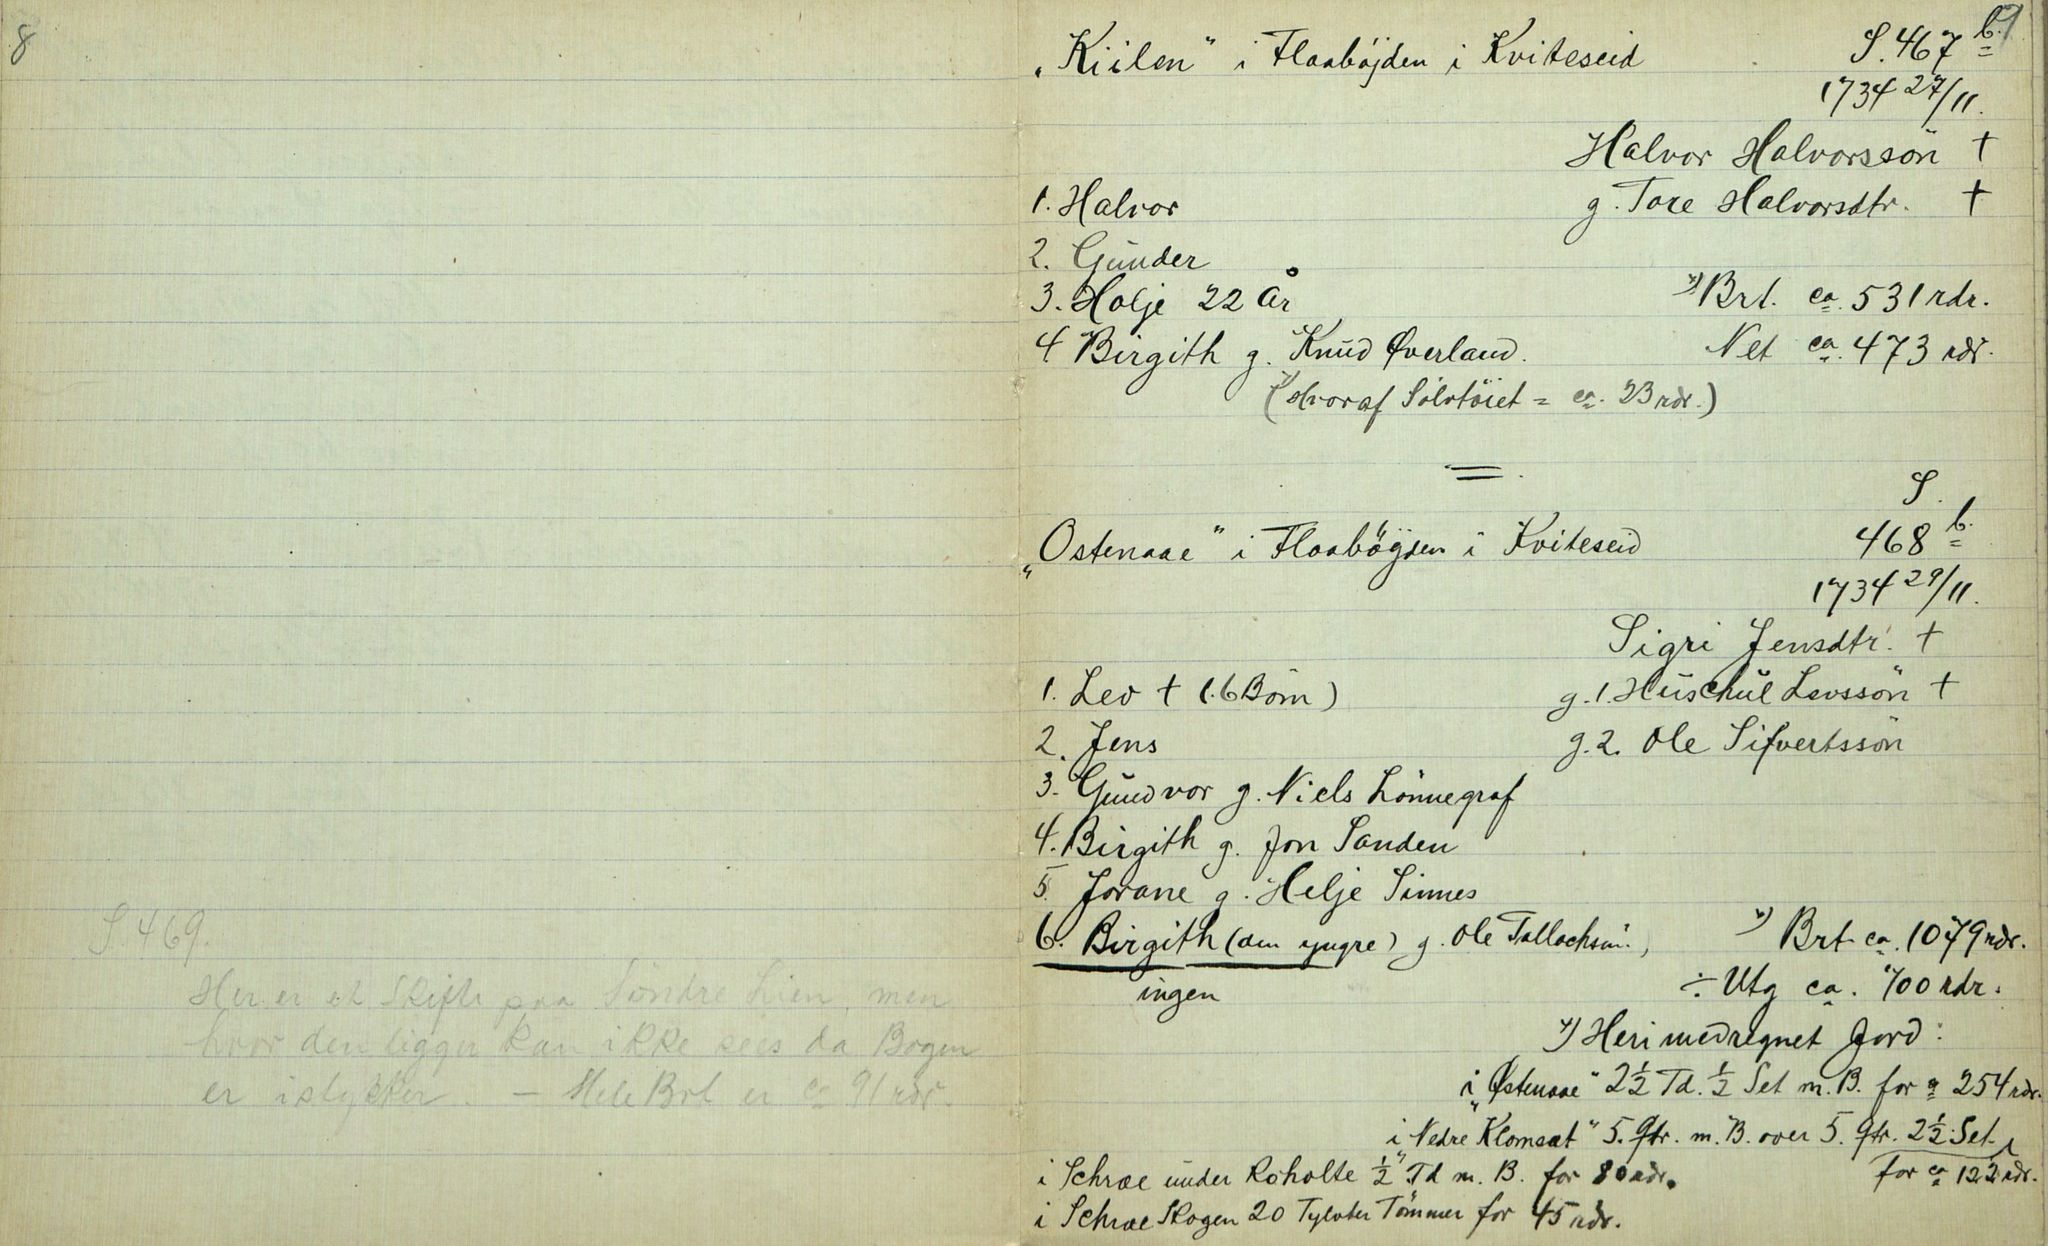 8
S. 469.
Her er et Skifte paa Söndre Lien, men
hvor den ligger kan ikke sees da Bogen
er istykker. – Hele Brt er ca 91 rdr.
9
„Kiilen" i Flaabøjden i Kviteseid S. 467 b.
1734 27/11.
Halvor Halvorssön †
1. Halvor g. Tore Halvorsdtr. †
2. Gunder
3. Holje 22 År x) Brt. ca. 531 rdr.
4 Birgith g. Knud Øverland. Net ca. 473 rdr.
(x) Hvoraf Sölvtöiet = ca. 23 rdr.)
S.
„Ostenaae" i Flaabøgden i Kviteseid 468 b.
1734 29/11.
Sigri Jensdtr. †
1. Lev † (.6 Börn) g. 1. Huschul Levssön †
2. Jens g. 2. Ole Sifvertssön
3. Gundvor g. Niels Lönnegraf
4. Birgith g. Jon Sanden
5. Jorane g. Helje Sinnes
6. Birgith (den yngre) g. Ole Tallachsøn., x) Brt ca. 1079 rdr.
ingen ÷ Utg ca. 700 rdr.
x) Heri medregnet Jord:
i „Østenaae" 2½ Td. ½ Set m. B. for a 254 rdr.
i „Nedre Klomsæt" 5. Qtr. m. B. over 5. Qtr. 2½ Set.
for ca 122 rdr.
i Schræ under Roholte ½ Td m. B. for 80 rdr.
i Schræ Skogen 20 Tylvter Tömmer for 45 rdr.